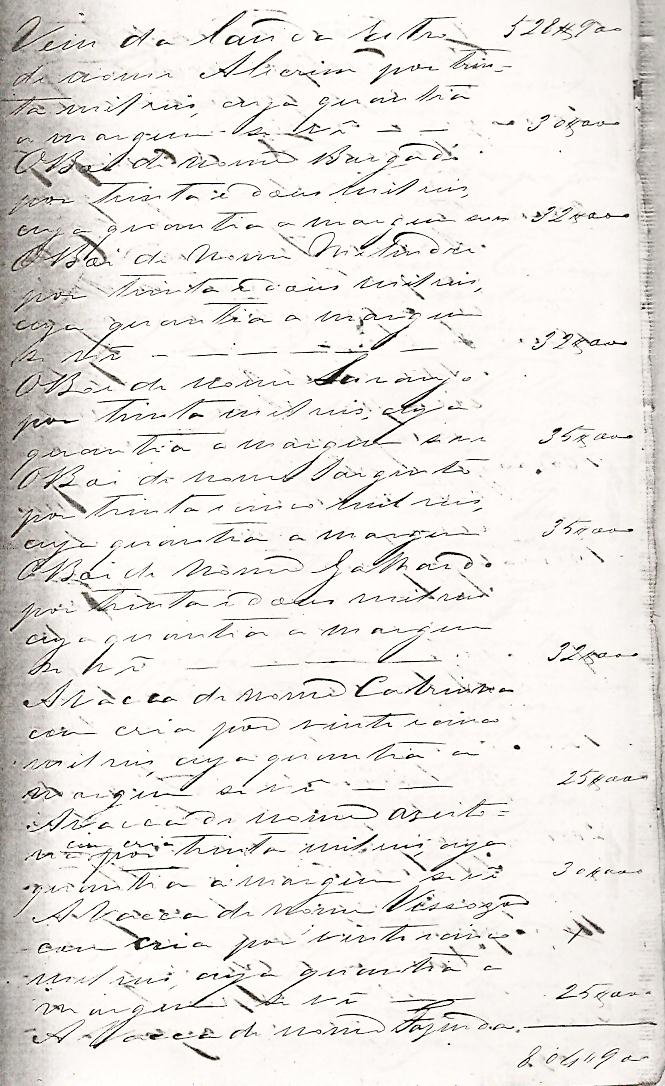 Vem da lauda retro 528$900
de nome Alecrim por trin-
ta mil reis, cuja quantia
a margem se vê — — 30$000
O Boi de nome Bargado
por trinta e dous mil reis,
cuja quantia a margem se ve 32$000
O Boi de Nome
por trinta e dous mil reis,
cuja quantia a margem
se vê — — — — 32$000
O Boi de nome Laranjo
por trinta mil reis, cuja
quantia a margem se ve 35$000
O Boi de nome Sargento
por trinta e cinco mil reis,
cuja quantia a margem 35$000
O Boi de Nome Galhardo
por trinta e dous mil reis
cuja quantia a margem
se vê — — — 32$000
A Vacca de nome Catrina
com cria por vinte e cinco
mil reis, cuja quantia a
margem se vê — — 25$000
A Vacca de nome Azeito=
na com cria por trinta mil reis, cuja
quantia a margem se vê 30$000
A Vacca de Nome
com cria por vinte e cinco
mil reis, cuja quantia a
margem se vê — 25$000
A Vacca de nome Fazenda.
804$900